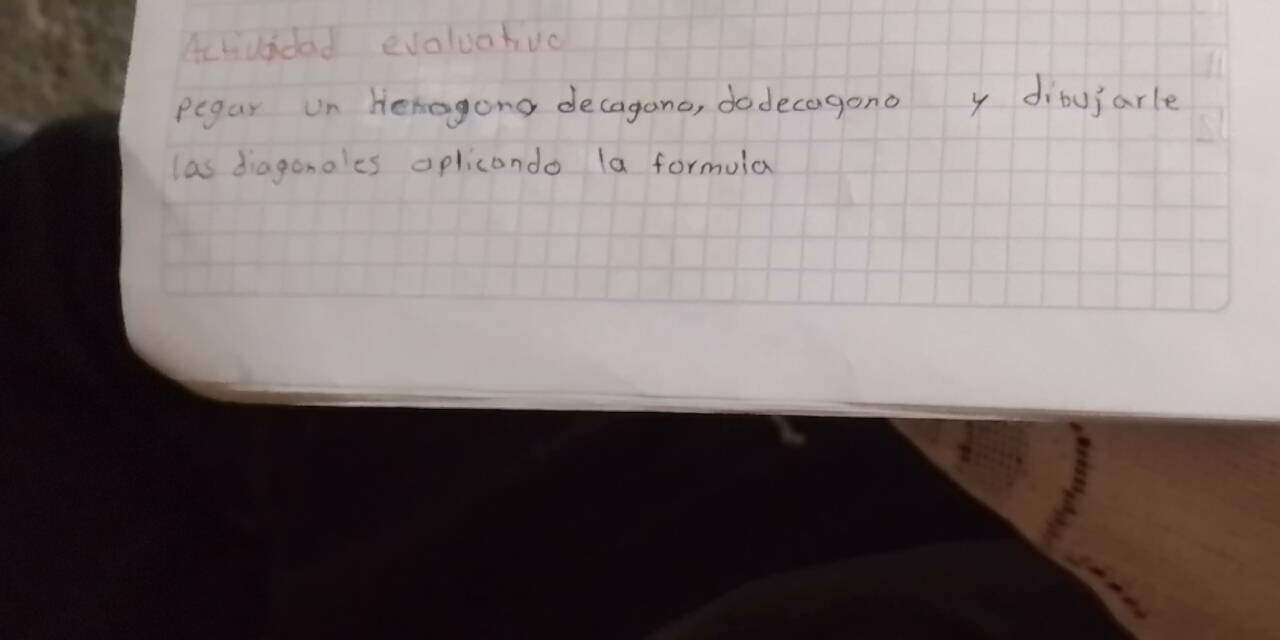 Actividad evaluativa
pegar un Hexagono decagono, dodecagono y dibujarle
las diagonales aplicando la formula